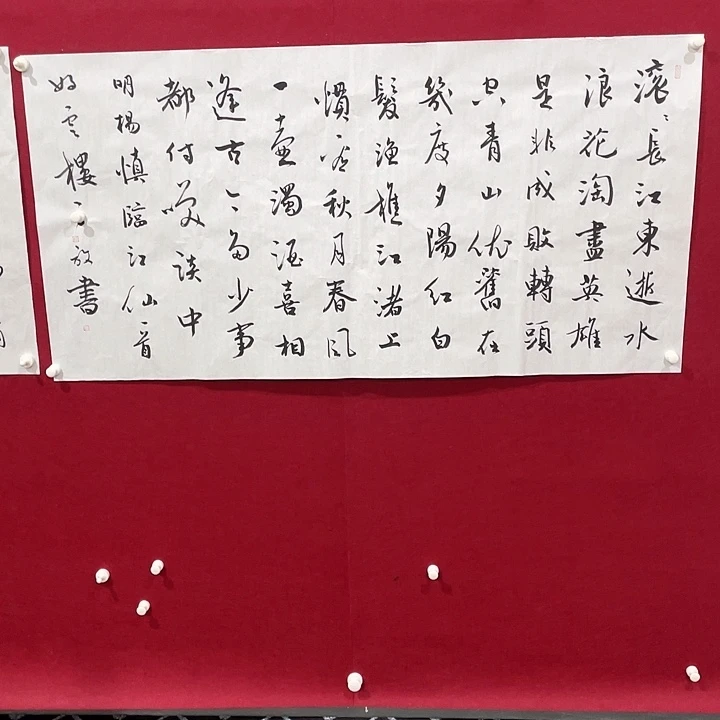 滚〻長江東逝水
浪花淘盡英雄
是非成敗轉頭
空青山依舊在
幾度夕陽紅白
髮漁樵江渚上
慣看秋月春風
一壺濁酒喜相
逢古今多少事
都付笑談中
明楊慎臨江仙一首
雲樓書